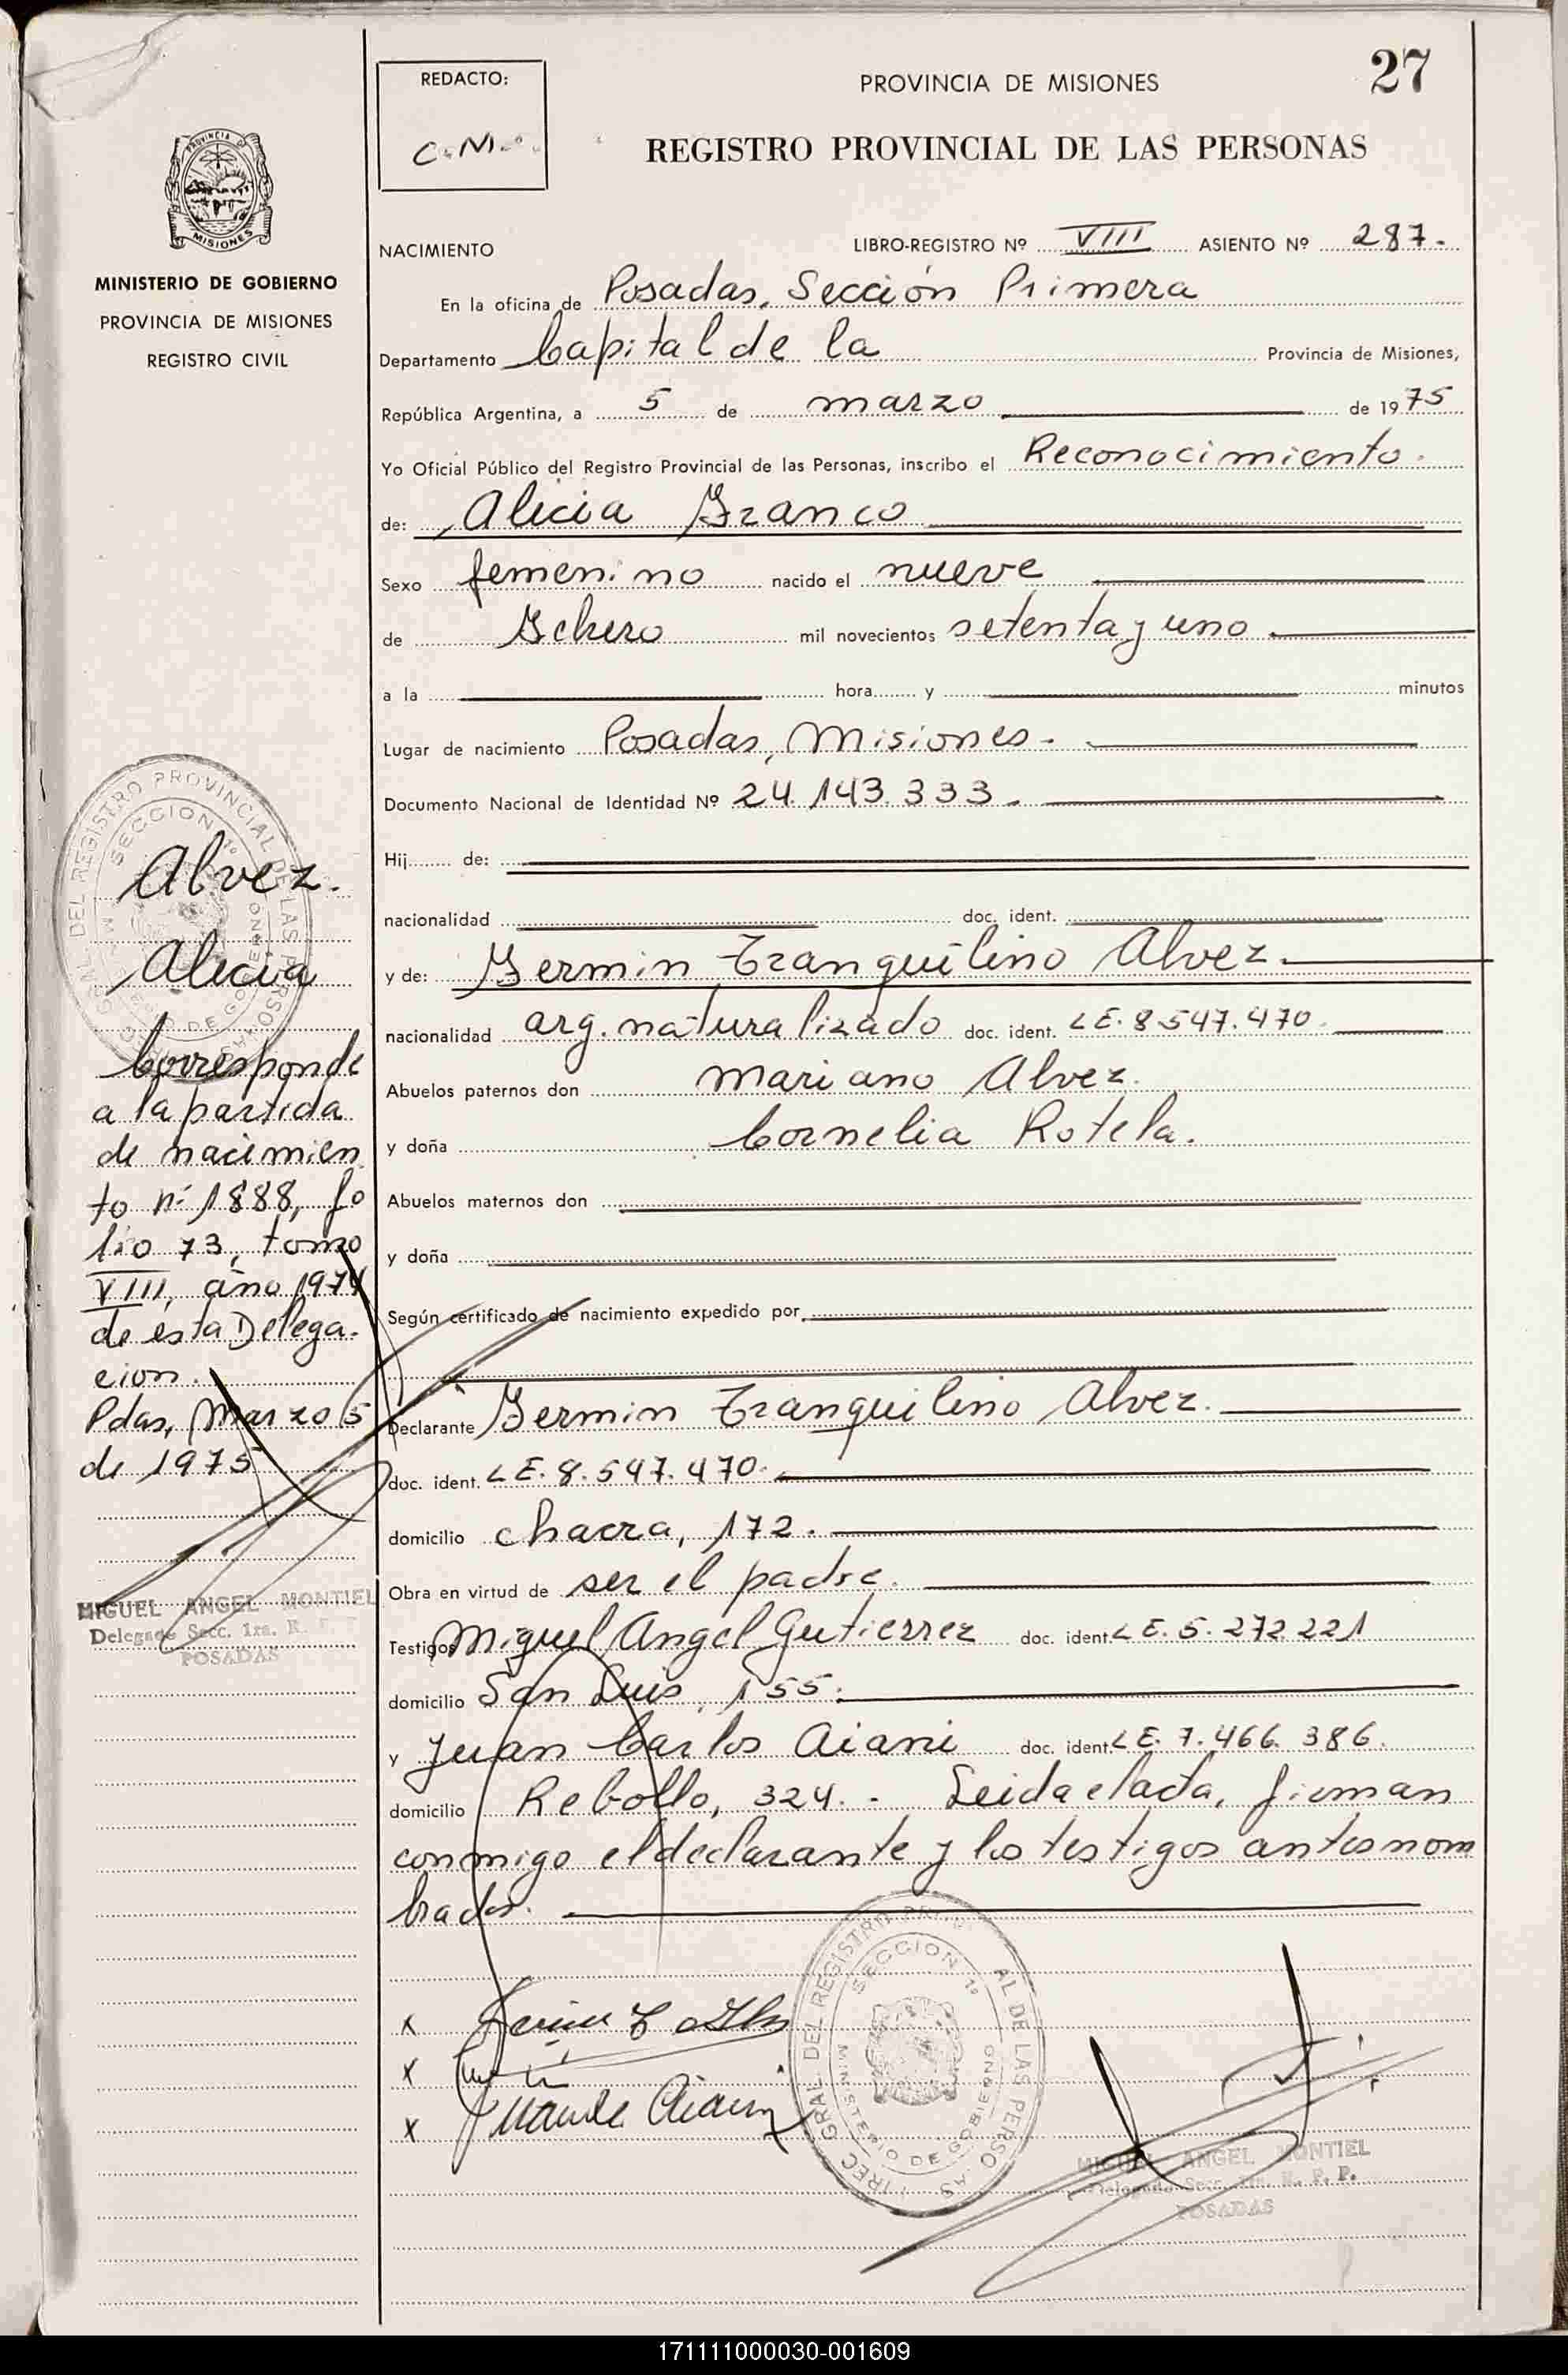 27
REDACTO:
PROVINCIA DE MISIONES
REGISTRO PROVINCIAL DE LAS PERSONAS
PROVINCIA DE
MISIONES
MINISTERIO DE GOBIERNO
PROVINCIA DE MISIONES
REGISTRO CIVIL
NACIMIENTO
LIBRO-REGISTRO Nº VIII ASIENTO Nº 287.
En la oficina de Posadas, Sección Primera
Departamento Capital de la Provincia de Misiones,
República Argentina, a 5 de marzo de 1975
Yo Oficial Público del Registro Provincial de las Personas, inscribo el Reconocimiento.
de: Alicia Franco
Sexo femenino nacido el nueve
de Febrero mil novecientos setenta y uno
a la hora y minutos
Lugar de nacimiento Posadas, Misiones.
Documento Nacional de Identidad Nº 24.143.333.
Hij de:
nacionalidad doc. ident.
y de: Fermin Tranquilino Alvez.
nacionalidad arg. naturalizado doc. ident. LE. 8.547.470
Abuelos paternos don Mariano Alvez.
y doña Cornelia Rotela.
Abuelos maternos don
y doña
Según certificado de nacimiento expedido por
Declarante Fermin Tranquilino Alvez.
doc. ident. LE. 8.547.470.
domicilio chacra, 172.
Obra en virtud de ser el padre.
Testigos Miguel Angel Gutierrez doc. ident. LE. 5.272.221
domicilio San Luis, 155.
y Juan Carlos Aiani doc. ident. LE. 7.466.386.
domicilio Rebollo, 324. - Leida el acta, firman
conmigo el declarante y los testigos antes nom
brados.
Alvez.
Alicia
Corresponde
a la partida
de nacimien
to nº 1888, fo
lio 73, tomo
VIII, año 1974
de esta Delega-
cion.
Pdas, Marzo 5
de 1975
MIGUEL ANGEL MONTIEL
Delegado Secc. 1ra. R.
POSADAS
x
x
x
DIREC. GRAL. DEL REGISTRO PROVINCIAL DE LAS PERSONAS
SECCION 1º
MINISTERIO DE GOBIERNO
MIGUEL ANGEL MONTIEL
Delegado Secc. 1ra. R. P. P.
POSADAS
171111000030-001609